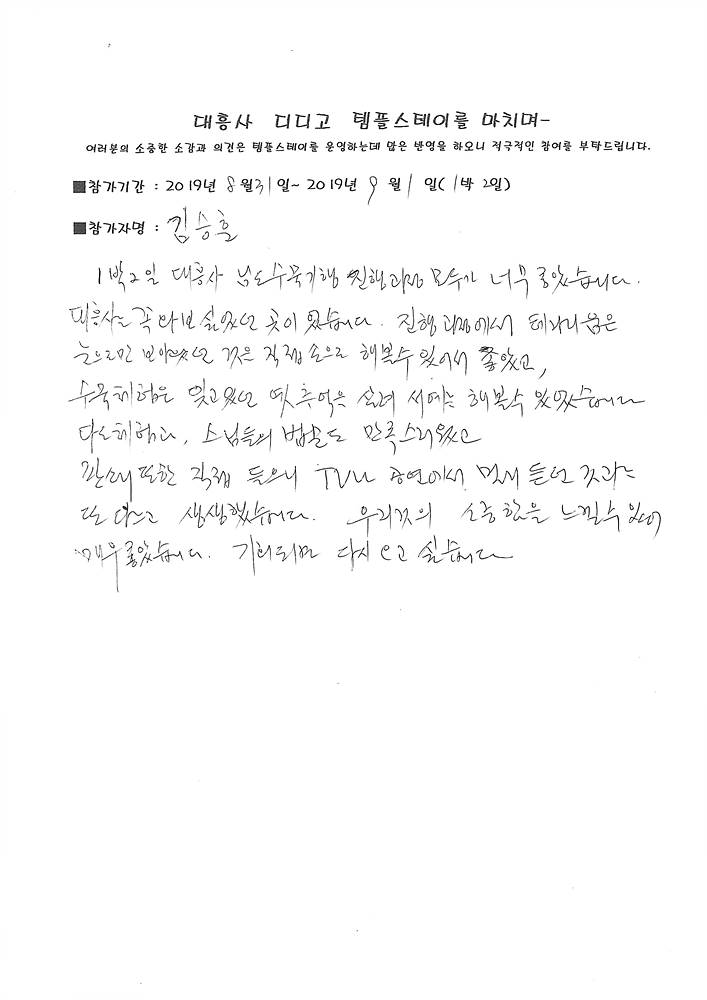 대흥사 디디고 템플스테이를 마치며-
여러분의 소중한 소감과 의견은 템플스테이를 운영하는데 많은 반영을 하오니 적극적인 참여를 부탁드립니다.
■참가기간 : 2019년 8월31일~ 2019년 9월 1일( 1박 2일)
■참가자명 : 김승호
1박2일 대흥사 남도수묵기행 진행과정 모두가 너무 좋았습니다.
대흥사는 꼭 와보고 싶었던 곳이였습니다. 진행과정에서
눈으로만 보아왔던 것은 직접 손으로 해볼수 있어서 좋았고,
수묵체험은 잊고있던 옛추억을 살려 서예를 해볼수 있었습니다
다도체험과, 스님들의 법문도 만족스러웠고
판소리 또한 직접 들으니 TV나 공연에서 멀리 듣던 것과는
또 다르고 생생했습니다. 우리것의 소중함을 느낄수 있어
매우 좋았습니다. 기회되면 다시 오고 싶습니다